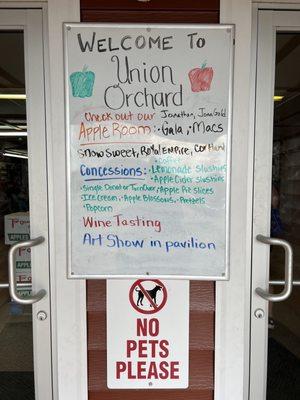 WELCOME TO
Union
Orchard
Check out our
Jonathan, JonaGold
Apple Room: •Gala, •Macs
Snow Sweet, Royal Empire, Cortland
•Coffee
Concessions: •Lemonade slushies
•Apple Cider slushies
•Single Donut or Turnover, •Apple Pie slices
•Ice cream, •Apple Blossoms, •Pretzels
•Popcorn
Wine Tasting
Art Show in pavilion
NO
PETS
PLEASE